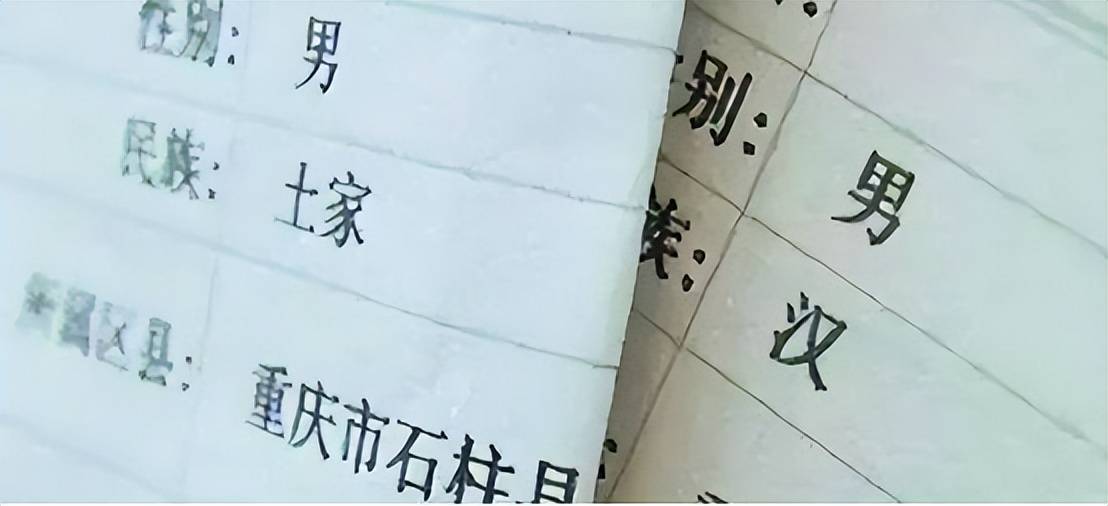 性别: 男
民族: 土家
区县: 重庆市石柱县
别: 男
族: 汉